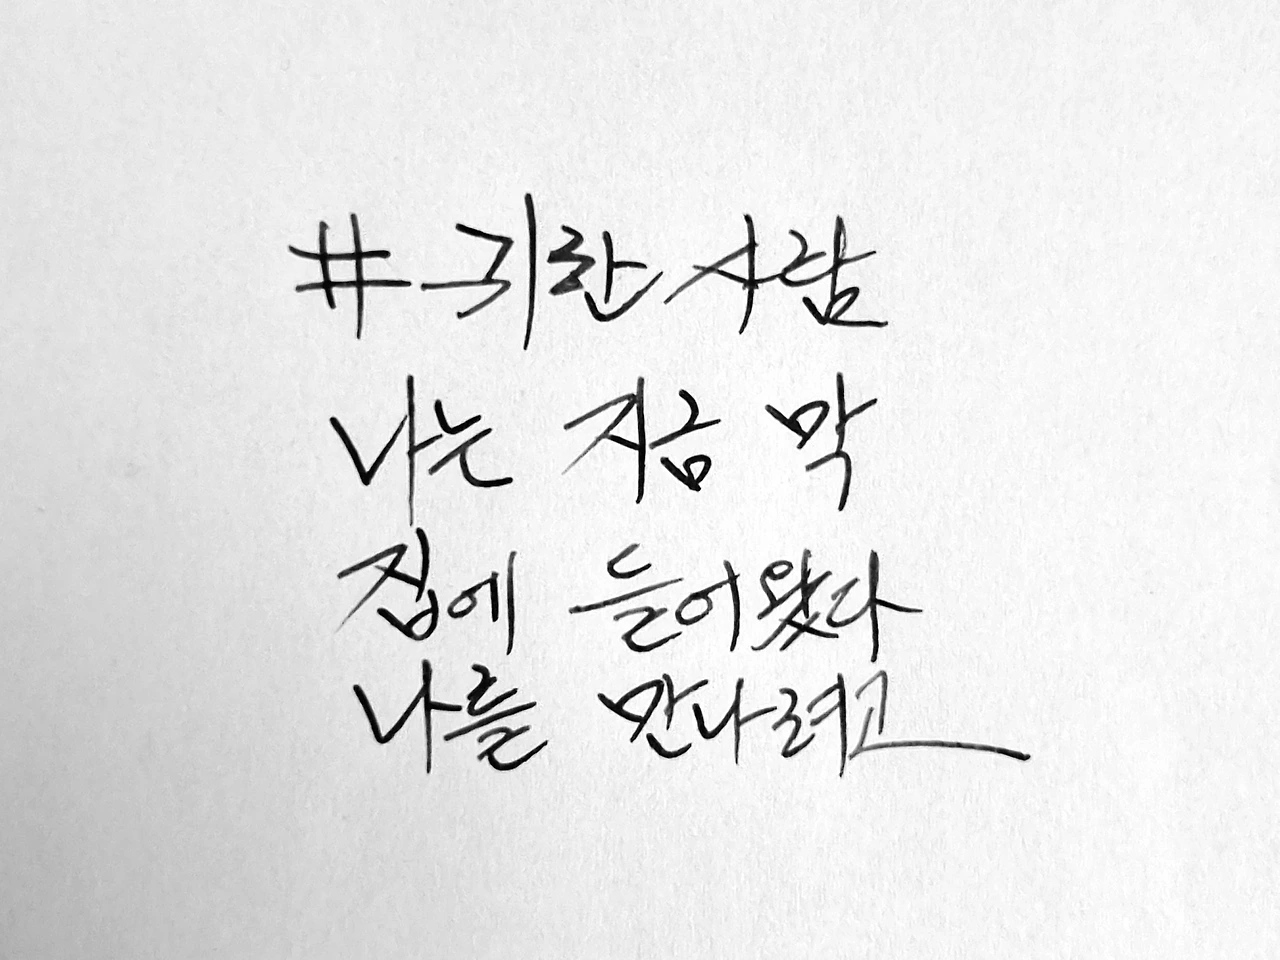 #귀한 사람
나는 지금 막
집에 들어왔다
나를 만나려고